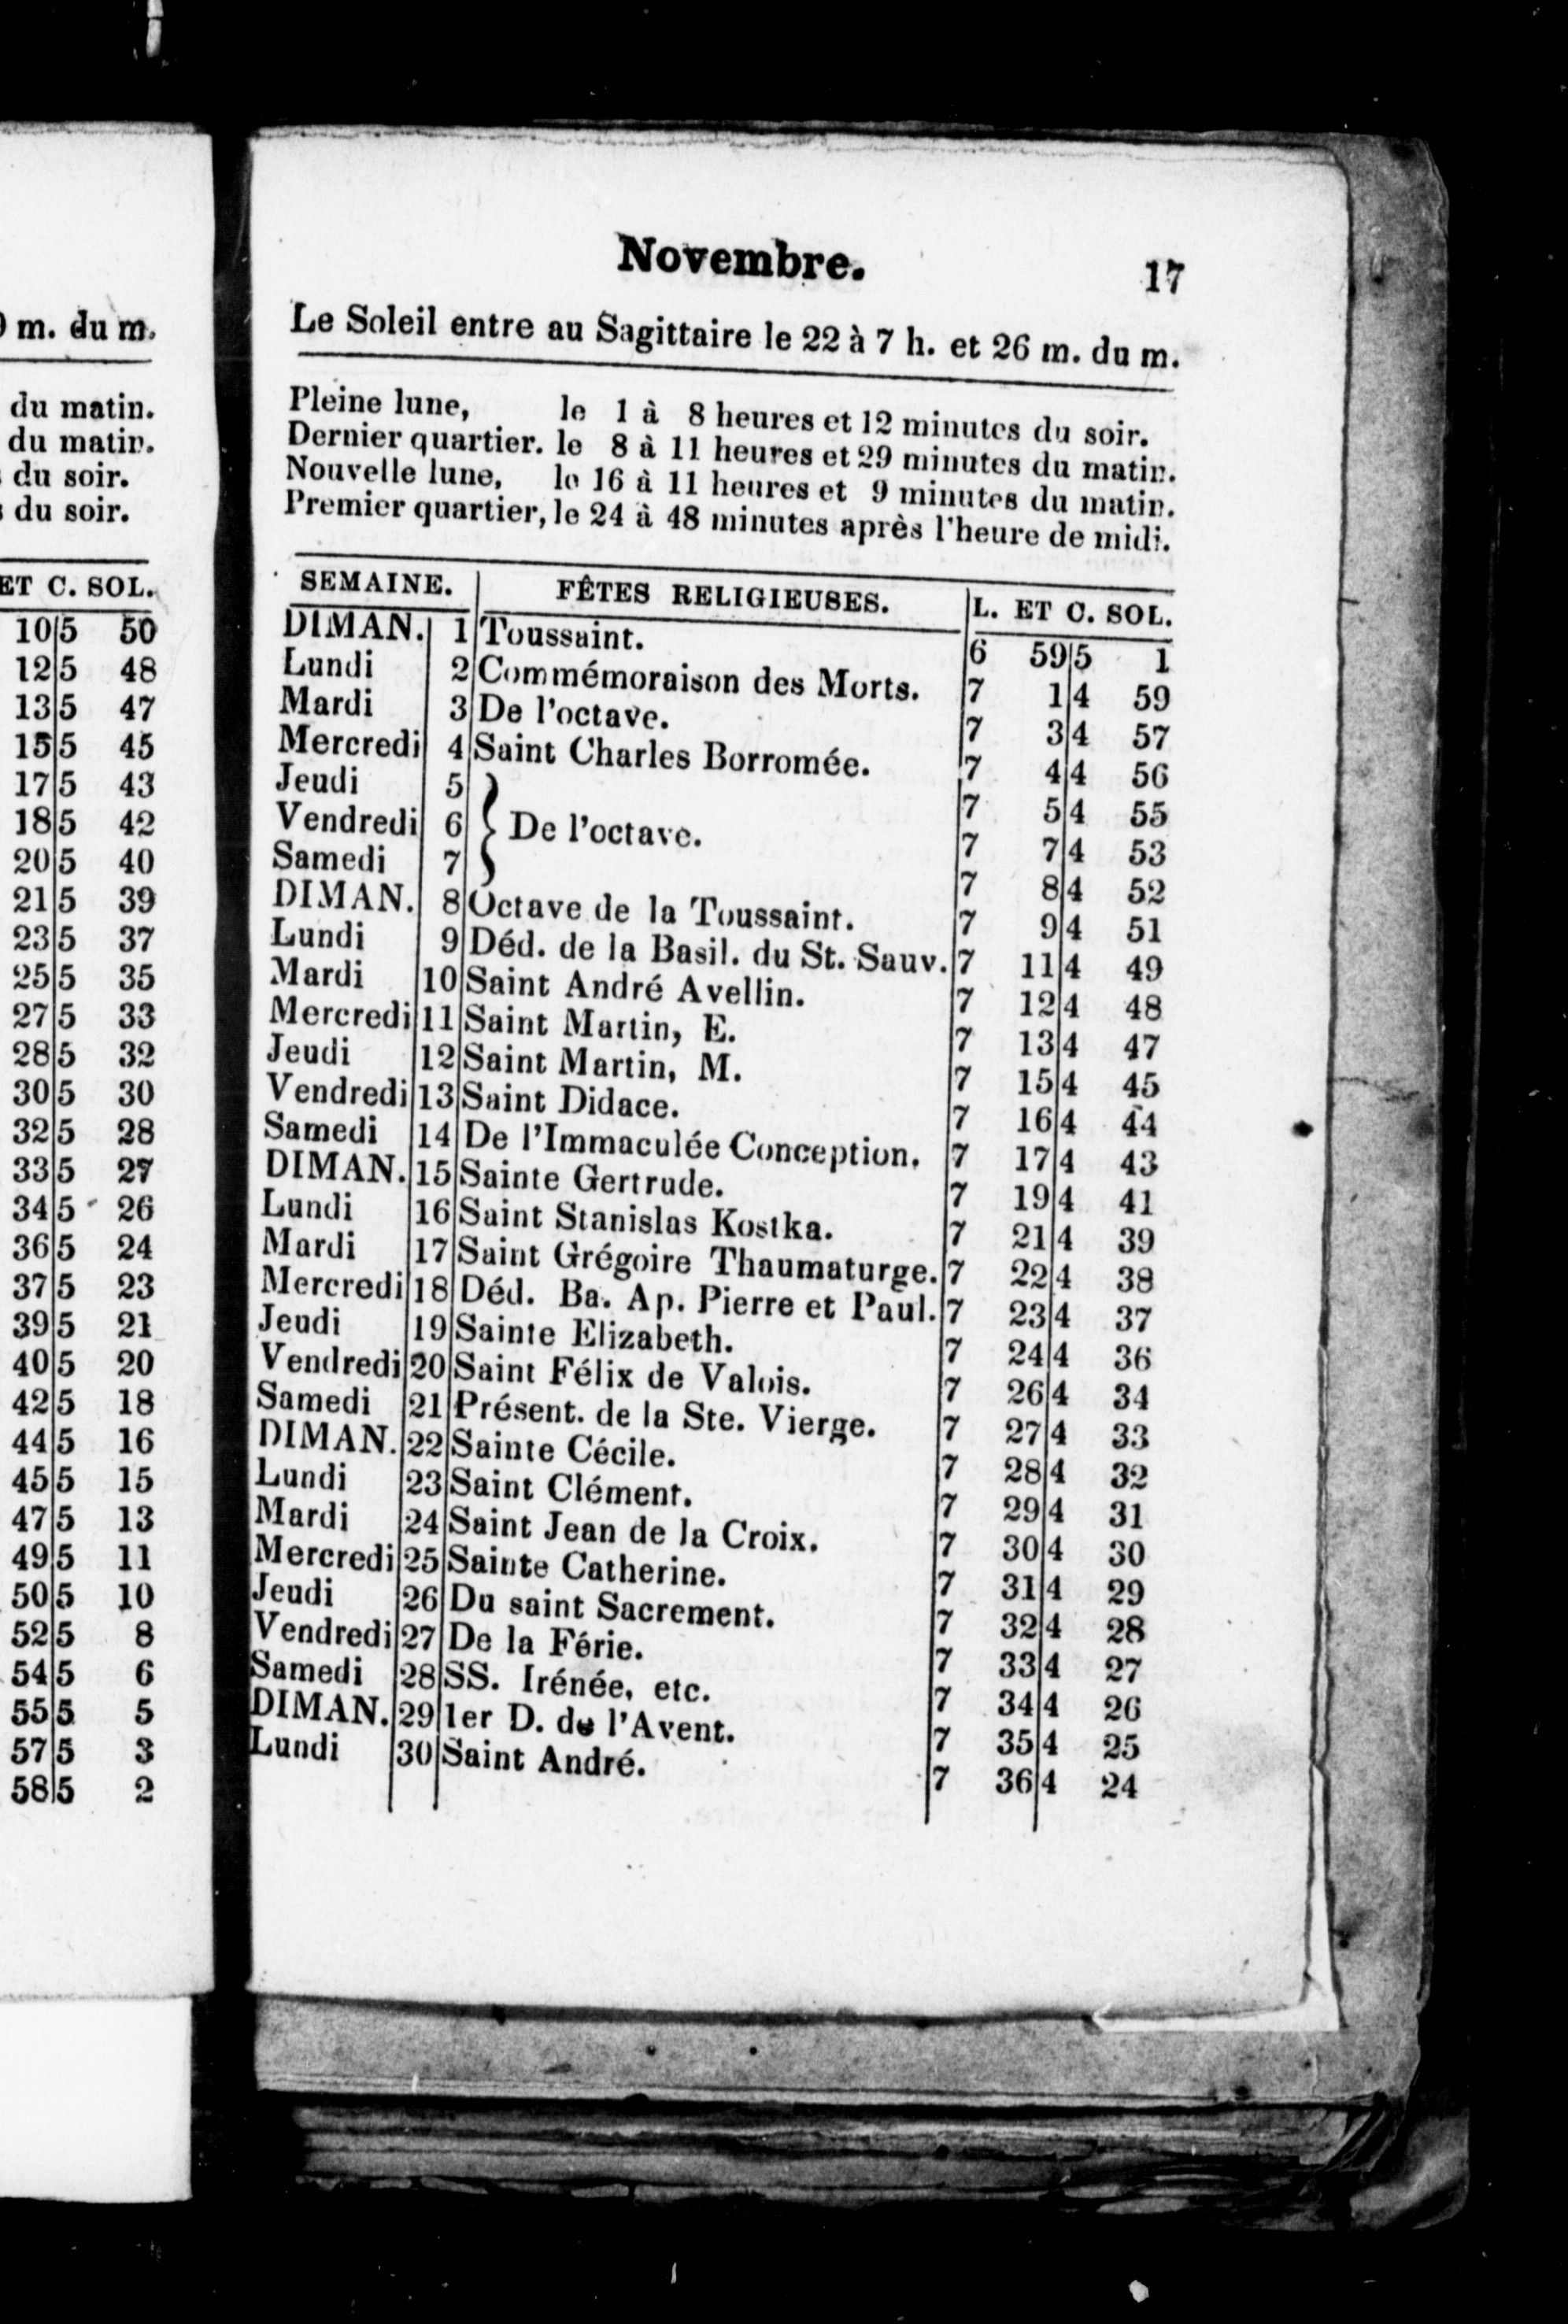 m. du m.
du matin.
du matin.
du soir.
du soir.
ET C. SOL.
10 5 50
12 5 48
13 5 47
15 5 45
17 5 43
18 5 42
20 5 40
21 5 39
23 5 37
25 5 35
27 5 33
28 5 32
30 5 30
32 5 28
33 5 27
34 5 26
36 5 24
37 5 23
39 5 21
40 5 20
42 5 18
44 5 16
45 5 15
47 5 13
49 5 11
50 5 10
52 5 8
54 5 6
55 5 5
57 5 3
58 5 2
Novembre. 17
Le Soleil entre au Sagittaire le 22 à 7 h. et 26 m. du m.
Pleine lune, le 1 à 8 heures et 12 minutes du soir.
Dernier quartier. le 8 à 11 heures et 29 minutes du matin.
Nouvelle lune, le 16 à 11 heures et 9 minutes du matin.
Premier quartier, le 24 à 48 minutes après l'heure de midi.
SEMAINE. FÊTES RELIGIEUSES. L. ET C. SOL.
DIMAN. 1 Toussaint. 6 59 5 1
Lundi 2 Commémoraison des Morts. 7 1 4 59
Mardi 3 De l'octave. 7 3 4 57
Mercredi 4 Saint Charles Borromée. 7 4 4 56
Jeudi 5 7 5 4 55
Vendredi 6 } De l'octave. 7 7 4 53
Samedi 7 7 8 4 52
DIMAN. 8 Octave de la Toussaint. 7 9 4 51
Lundi 9 Déd. de la Basil. du St. Sauv. 7 11 4 49
Mardi 10 Saint André Avellin. 7 12 4 48
Mercredi 11 Saint Martin, E. 7 13 4 47
Jeudi 12 Saint Martin, M. 7 15 4 45
Vendredi 13 Saint Didace. 7 16 4 44
Samedi 14 De l'Immaculée Conception. 7 17 4 43
DIMAN. 15 Sainte Gertrude. 7 19 4 41
Lundi 16 Saint Stanislas Kostka. 7 21 4 39
Mardi 17 Saint Grégoire Thaumaturge. 7 22 4 38
Mercredi 18 Déd. Ba. Ap. Pierre et Paul. 7 23 4 37
Jeudi 19 Sainte Elizabeth. 7 24 4 36
Vendredi 20 Saint Félix de Valois. 7 26 4 34
Samedi 21 Présent. de la Ste. Vierge. 7 27 4 33
DIMAN. 22 Sainte Cécile. 7 28 4 32
Lundi 23 Saint Clément. 7 29 4 31
Mardi 24 Saint Jean de la Croix. 7 30 4 30
Mercredi 25 Sainte Catherine. 7 31 4 29
Jeudi 26 Du saint Sacrement. 7 32 4 28
Vendredi 27 De la Férie. 7 33 4 27
Samedi 28 SS. Irénée, etc. 7 34 4 26
DIMAN. 29 1er D. de l'Avent. 7 35 4 25
Lundi 30 Saint André. 7 36 4 24